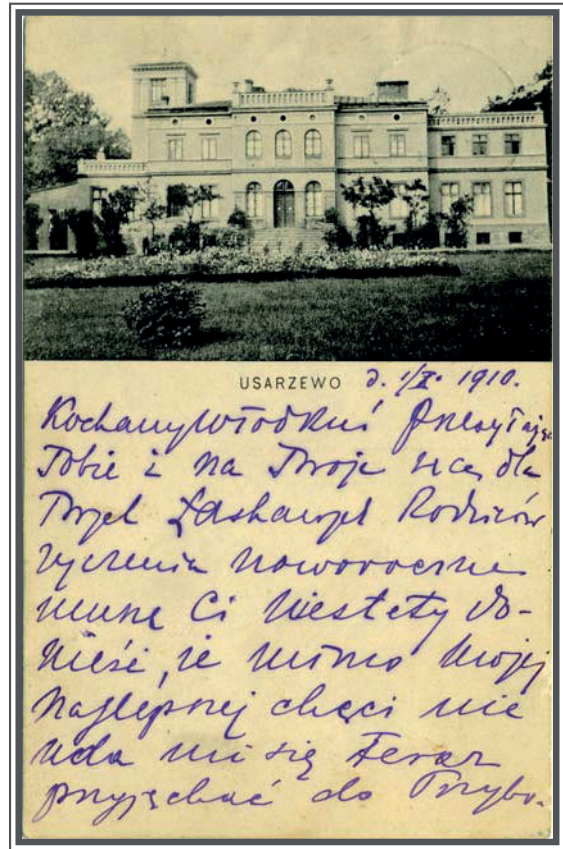 USARZEWO d. 1/I. 1910.
Kochany Włodkuś przesyłając
Tobie i na Twoje ręce dla
Twych Łaskawych Rodziców
życzenia noworoczne
muszę Ci niestety do-
nieść, że mimo mojej
najlepszej chęci nie
uda mi się teraz
przyjechać do Przybo-